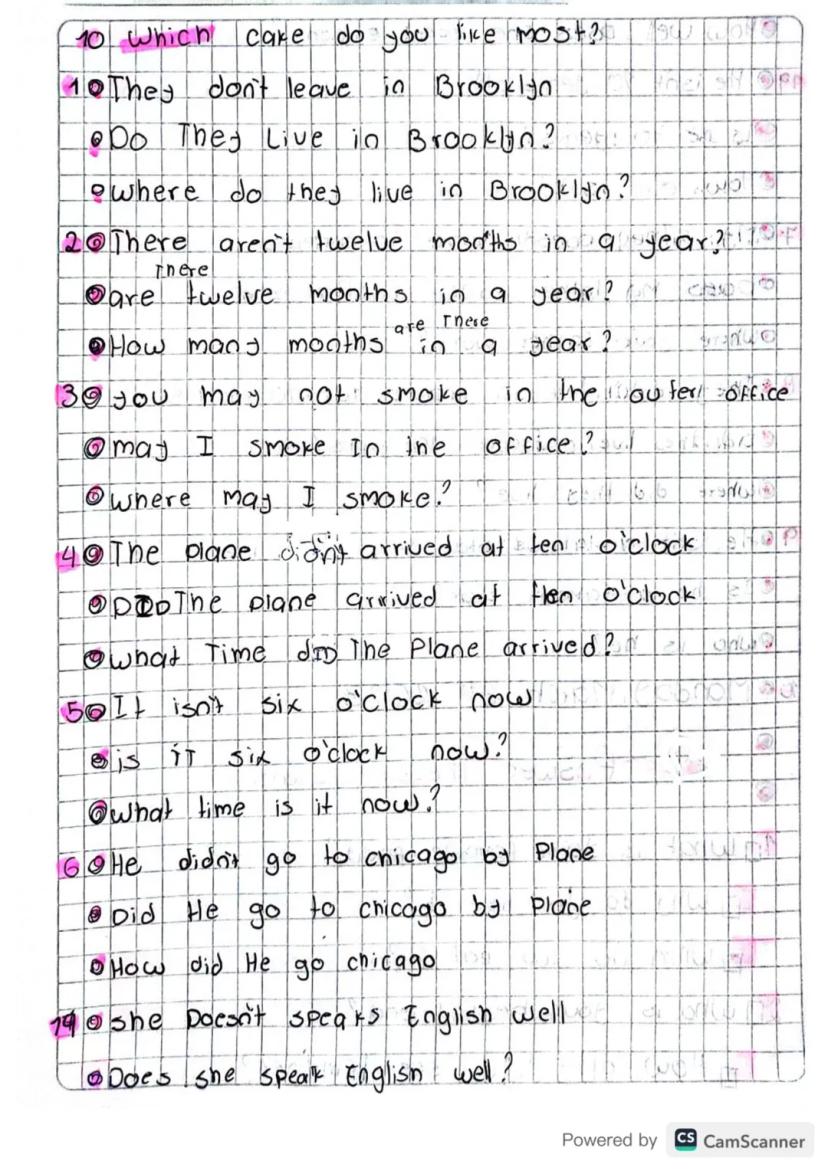 10 Which cake do you like most?
1 They don't leave in Brooklyn
Do They Live in Brooklyn?
where do they live in Brooklyn?
2 There aren't twelve months in a year?
There
are twelve months in a year?
are There
How many months in a year?
3 you may not smoke in the outer office
may I smoke In the office?
where may I smoke?
4 The plane didn't arrived at ten o'clock
DID The plane arrived at ten o'clock
what Time dID The Plane arrived?
5 It isn't six o'clock now
is iT six o'clock now?
what time is it now?
6 He didn't go to chicago by Plane
Did He go to chicago by Plane
How did He go chicago
she Doesn't speaks English well
Does she speak English well?
Powered by CS CamScanner